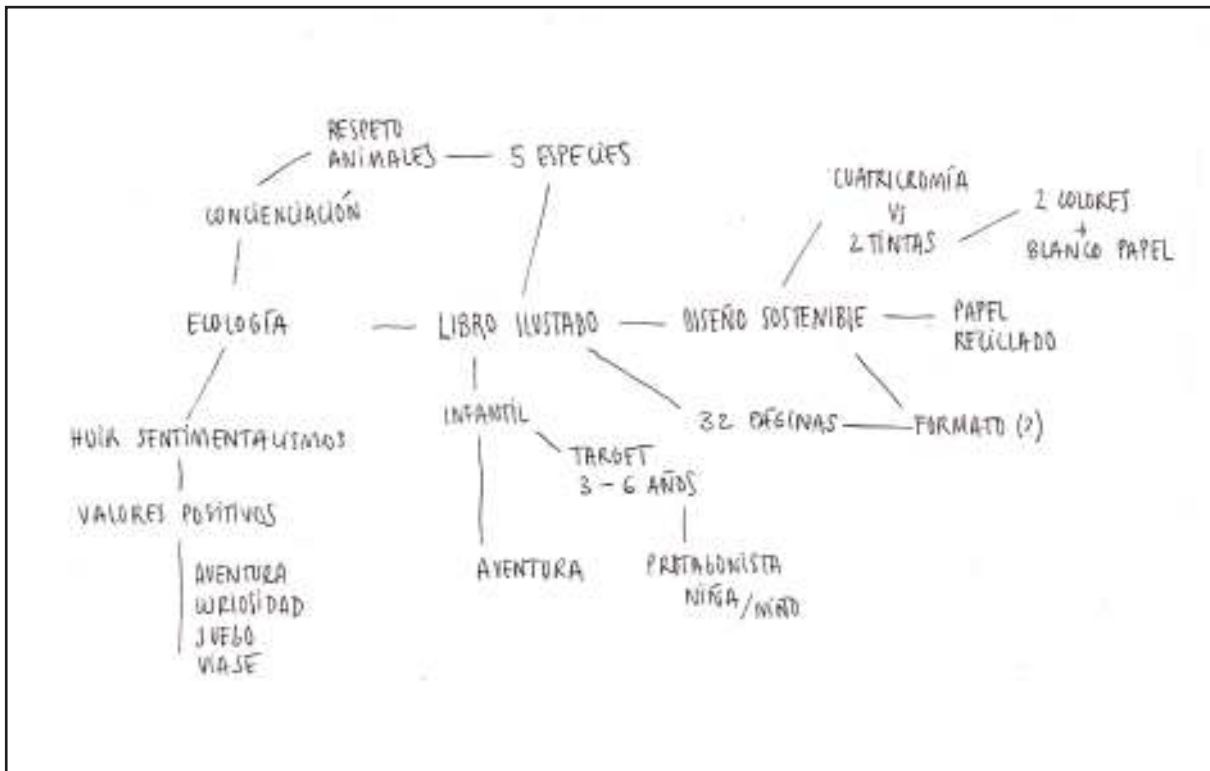 RESPETO
ANIMALES
5 ESPECIES
CONCIENCIACIÓN
CUATRICROMÍA
VS
2 TINTAS
2 COLORES
+
BLANCO PAPEL
ECOLOGÍA
LIBRO ILUSTADO
DISEÑO SOSTENIBLE
PAPEL
RECICLADO
HUIR SENTIMENTALISMOS
INFANTIL
32 PÁGINAS
FORMATO (?)
TARGET
3 - 6 AÑOS
VALORES POSITIVOS
AVENTURA
CURIOSIDAD
JUEGO
VIAJE
AVENTURA
PROTAGONISTA
NIÑA/NIÑO